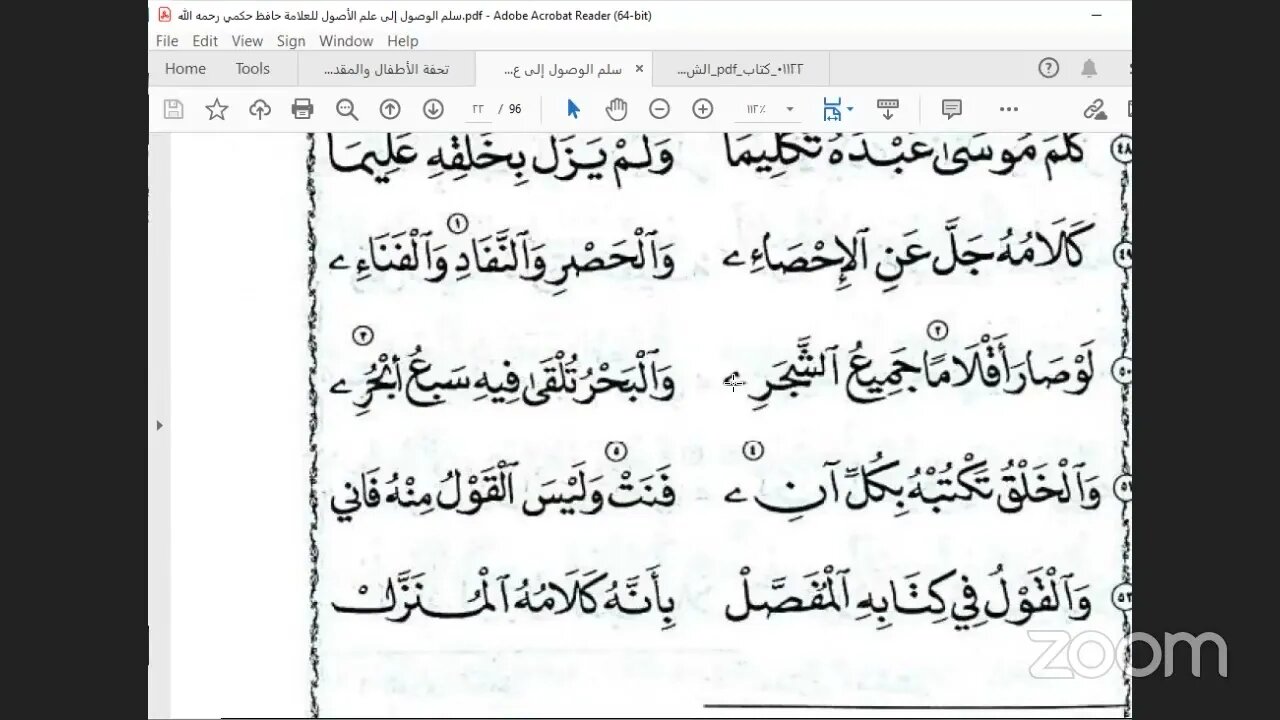 سلم الوصول إلى علم الأصول للعلامة حافظ حكمي رحمه الله.pdf - Adobe Acrobat Reader (64-bit)
File Edit View Sign Window Help
Home Tools تحفة الأطفال والمقد... سلم الوصول إلى ع... × ١١٢٢•_كتاب_pdf_الش...
٢٢ / 96 ١١٢٪
٤٨ كَلَّمَ مُوسَىٰ عَبْدَهُ تَكْلِيمَا وَلَمْ يَزَلْ بِخَلْقِهِ عَلِيمَا
٤٩ كَلَامُهُ جَلَّ عَنِ ٱلْإِحْصَاءِ ے وَٱلْحَصْرِ وَٱلنَّفَادِ (١) وَٱلْفَنَاءِ ے
٥٠ لَوْ صَارَ أَقْلَامًا (٢) جَمِيعُ ٱلشَّجَرِ ے وَٱلْبَحْرُ تُلْقَىٰ فِيهِ سَبْعُ أَبْحُرِ ے (٣)
٥١ وَٱلْخَلْقُ تَكْتُبْهُ بِكُلِّ آنِ ے (٤) فَنَتْ (٥) وَلَيْسَ ٱلْقَوْلُ مِنْهُ فَانِي
٥٢ وَٱلْقَوْلُ فِي كِتَابِهِ ٱلْمُفَصَّلْ بِأَنَّهُ كَلَامُهُ ٱلْمُنَزَّلْ
zoom